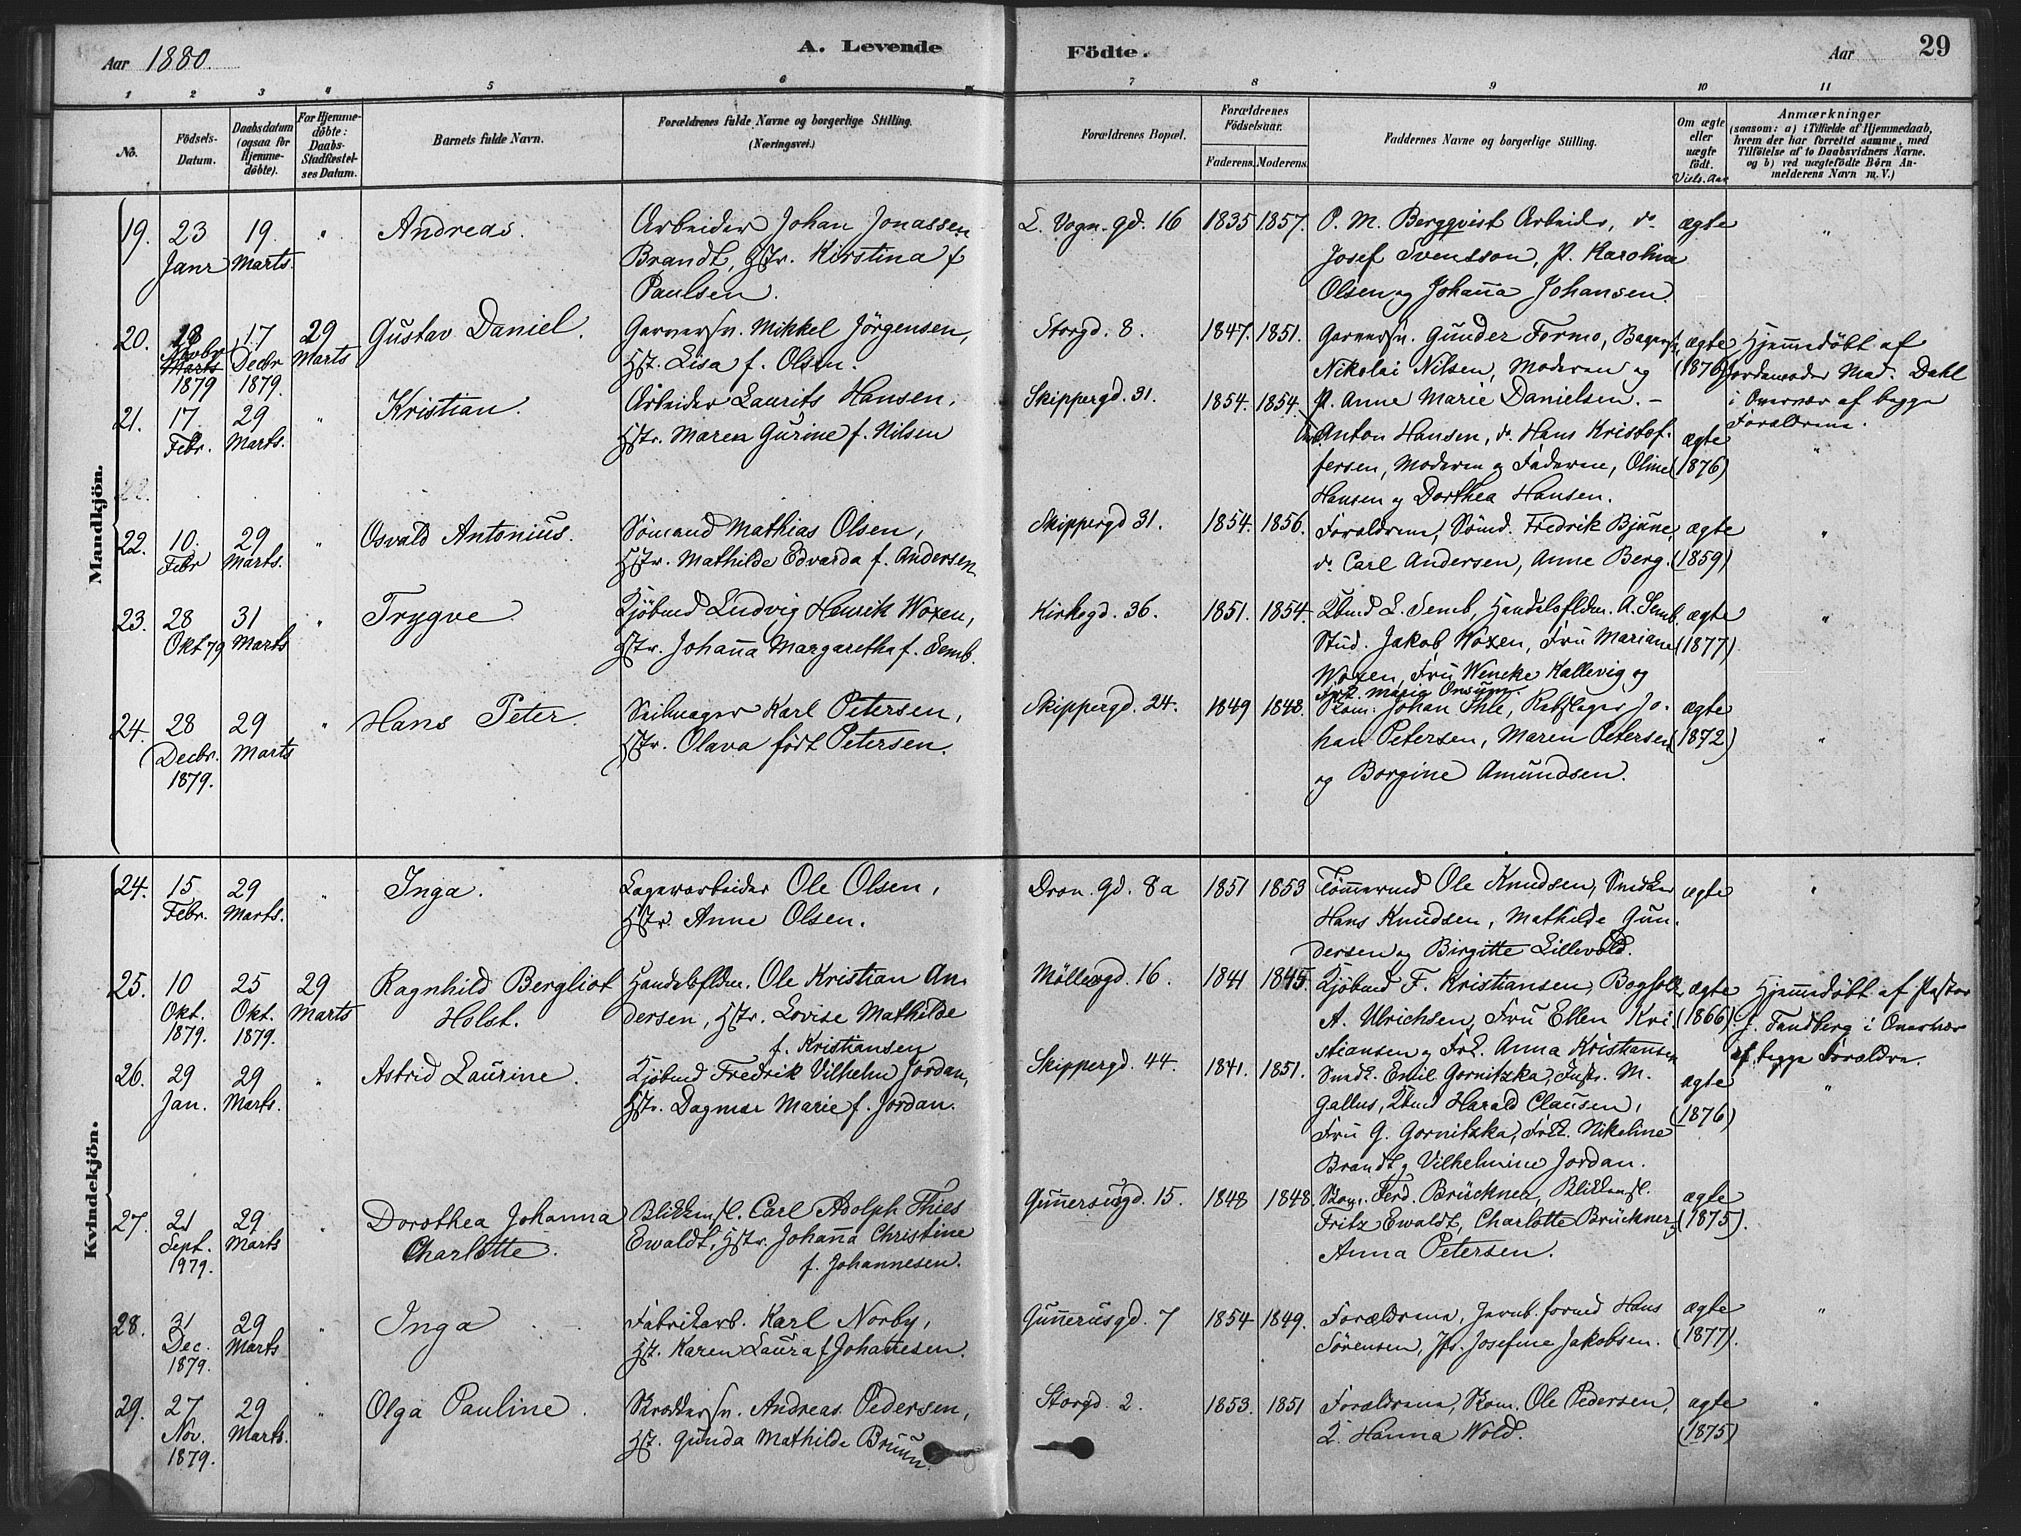 Aar 1880.
A. Levende Födte.
Aar 29
1 2 3 4 5 6 7 8 9 10 11
No.
Födsels-Datum.
Daabsdatum (ogsaa for Hjemmedöbte).
For Hjemmedöbte: Daabs-Stadfæstelses Datum.
Barnets fulde Navn.
Forældrenes fulde Navne og borgerlige Stilling.
(Næringsvei.)
Forældrenes Bopæl.
Forældrenes Födselsaar.
Faderens. Moderens.
Faddernes Navne og borgerlige Stilling.
Om ægte eller uægte födt.
Viels. Aar
Anmærkninger
(saasom: a) i Tilfælde af Hjemmedaab,
hvem der har forrettet samme, med
Tilfötelse af to Daabsvidners Navne,
og b) ved uægtefödte Börn Anmelderens Navn m. V.)
Mandkjön.
19. 23 Janr 19. Marts. " Andreas.
Arbeider Johan Jonassen
Brandt, Hstr. Kirstina f
Paulsen.
L. Vogn. gd. 16 1835 1857.
P. M. Bergqvist Arbeider, do
Josef Svensson, P. Karolina
Olsen og Johanna Johansen.
ægte "
20. 28 Novbr Marts 1879 17 Decbr 1879. 29 Marts Gustav Daniel.
Garversv. Mikkel Jörgensen,
Hst. Lisa f. Olsen.
Storgd. 8. 1847. 1851.
Garversv. Gunder Formo, Bagersv.
Nikolai Nilsen, Moderen og
P. Anne Marie Danielsen. -
ægte (1876)
Hjemmedöbt af
Jordemoder Mad. Dahl
i Overvær af begge
Forældrene.
21. 17 Febr. 29 Marts. " Kristian.
Arbeider Laurits Hansen,
Hstr. Maren Gurine f. Nilsen
Skippergd. 31. 1854. 1854.
Anton Hansen, do. Hans Kristof-
fersen, Moderen og Faderene, Oline
Hansen og Dorthea Hansen.
ægte (1876) "
22. 10. Febr 29 Marts. " Osvald Antonius.
Sömand Mathias Olsen,
Hstr. Mathilde Edvarda f. Andersen
Skippergd 31. 1854. 1856.
Forældrene, Sömd. Fredrik Bjune,
do Carl Andersen, Anne Berg.
ægte (1859) "
23. 28 Okt 79 31 Marts " Trygve
Kjöbmd Ludvig Henrik Woxen,
Hstr. Johanna Margaretha f. Semb.
Kirkegd. 36. 1851. 1854.
Kbmd L. Semb, Handelsfldm. A. Semb.
Stud. Jakob Woxen, Fru Mariane
Woxen, Fru Wencke Kallevig og
Frk. Marie Onsum.
ægte (1877) "
24. 28 Decbr. 1879. 29 Marts " Hans Peter.
Seilmager Karl Petersen,
Hstr. Olava födt Petersen.
Skippergd. 24. 1849 1848.
Skom. Johan Ihle, Rebslager Jo-
han Petersen, Maren Petersen
og Borgine Amundsen.
ægte (1872) "
Kvindekjön.
24. 15 Febr. 29 Marts. " Inga.
Lagerarbeider Ole Olsen,
Hstr. Anne Olsen.
Dron. gd. 8a 1851 1853
Tömmermd Ole Knudsen, Snedker
Hans Knudsen, Mathilde Gun-
dersen og Birgitte Lillevold.
ægte "
25. 10 Okt. 1879. 25 Okt. 1879. 29 Marts Ragnhild Bergliot
Holst.
Handelsfldm. Ole Kristian An-
dersen, Hstr. Lovise Mathilde
f. Kristiansen
Möllergd. 16. 1841 1845.
Kjöbmd F. Kristiansen, Bogholder
A. Ulrichsen, Fru Ellen Kri-
stiansen og Frk. Anna Kristiansen
ægte (1866)
Hjemmedöbt af Pastor
J. Tandberg i Overvær
af begge Forældre
26. 29 Jan. 29 Marts. " Astrid Laurine.
Kjöbmd Fredrik Vilhelm Jordan,
Hstr. Dagmar Marie f. Jordan.
Skippergd. 44. 1841. 1851.
Snedk. Emil Gornitzka, M.
Gallus, Kbmd Harald Clausen,
Fru G. Gornitzka, Frk. Nikoline
Brandt og Vilhelmine Jordan.
ægte (1876) "
27. 21 Sept. 1979. 29 Marts " Dorothea Johanna
Charlotte.
Blikkensl. Carl Adolph Thies
Ewaldt, Hstr. Johanna Christine
f. Johannesen.
Gunnerusgd. 15. 1848 1848.
Skom. Ferd. Brückner, Blikkensl.
Fritz Ewaldt, Charlotte Brückner,
Anna Petersen.
ægte (1875).
28. 31 Dec. 1879. 29 Marts " Inga
Fabrikarb. Karl Norby,
Hst. Karen Laura f Johannesen.
Gunnerusgd. 7 1854 1849.
Forældrene, Jernb. formd Hans
Sörensen, Jfr. Josefine Jakobsen.
ægte (1877). "
29. 27 Nov. 1879. 29 Marts. " Olga Pauline.
Skræddersv. Andreas Pedersen,
Hst. Gunda Mathilde Bruun.
Storgd. 2. 1853. 1851
Forældrene, Skom. Ole Pedersen,
Hanna Wold.
ægte (1875) "